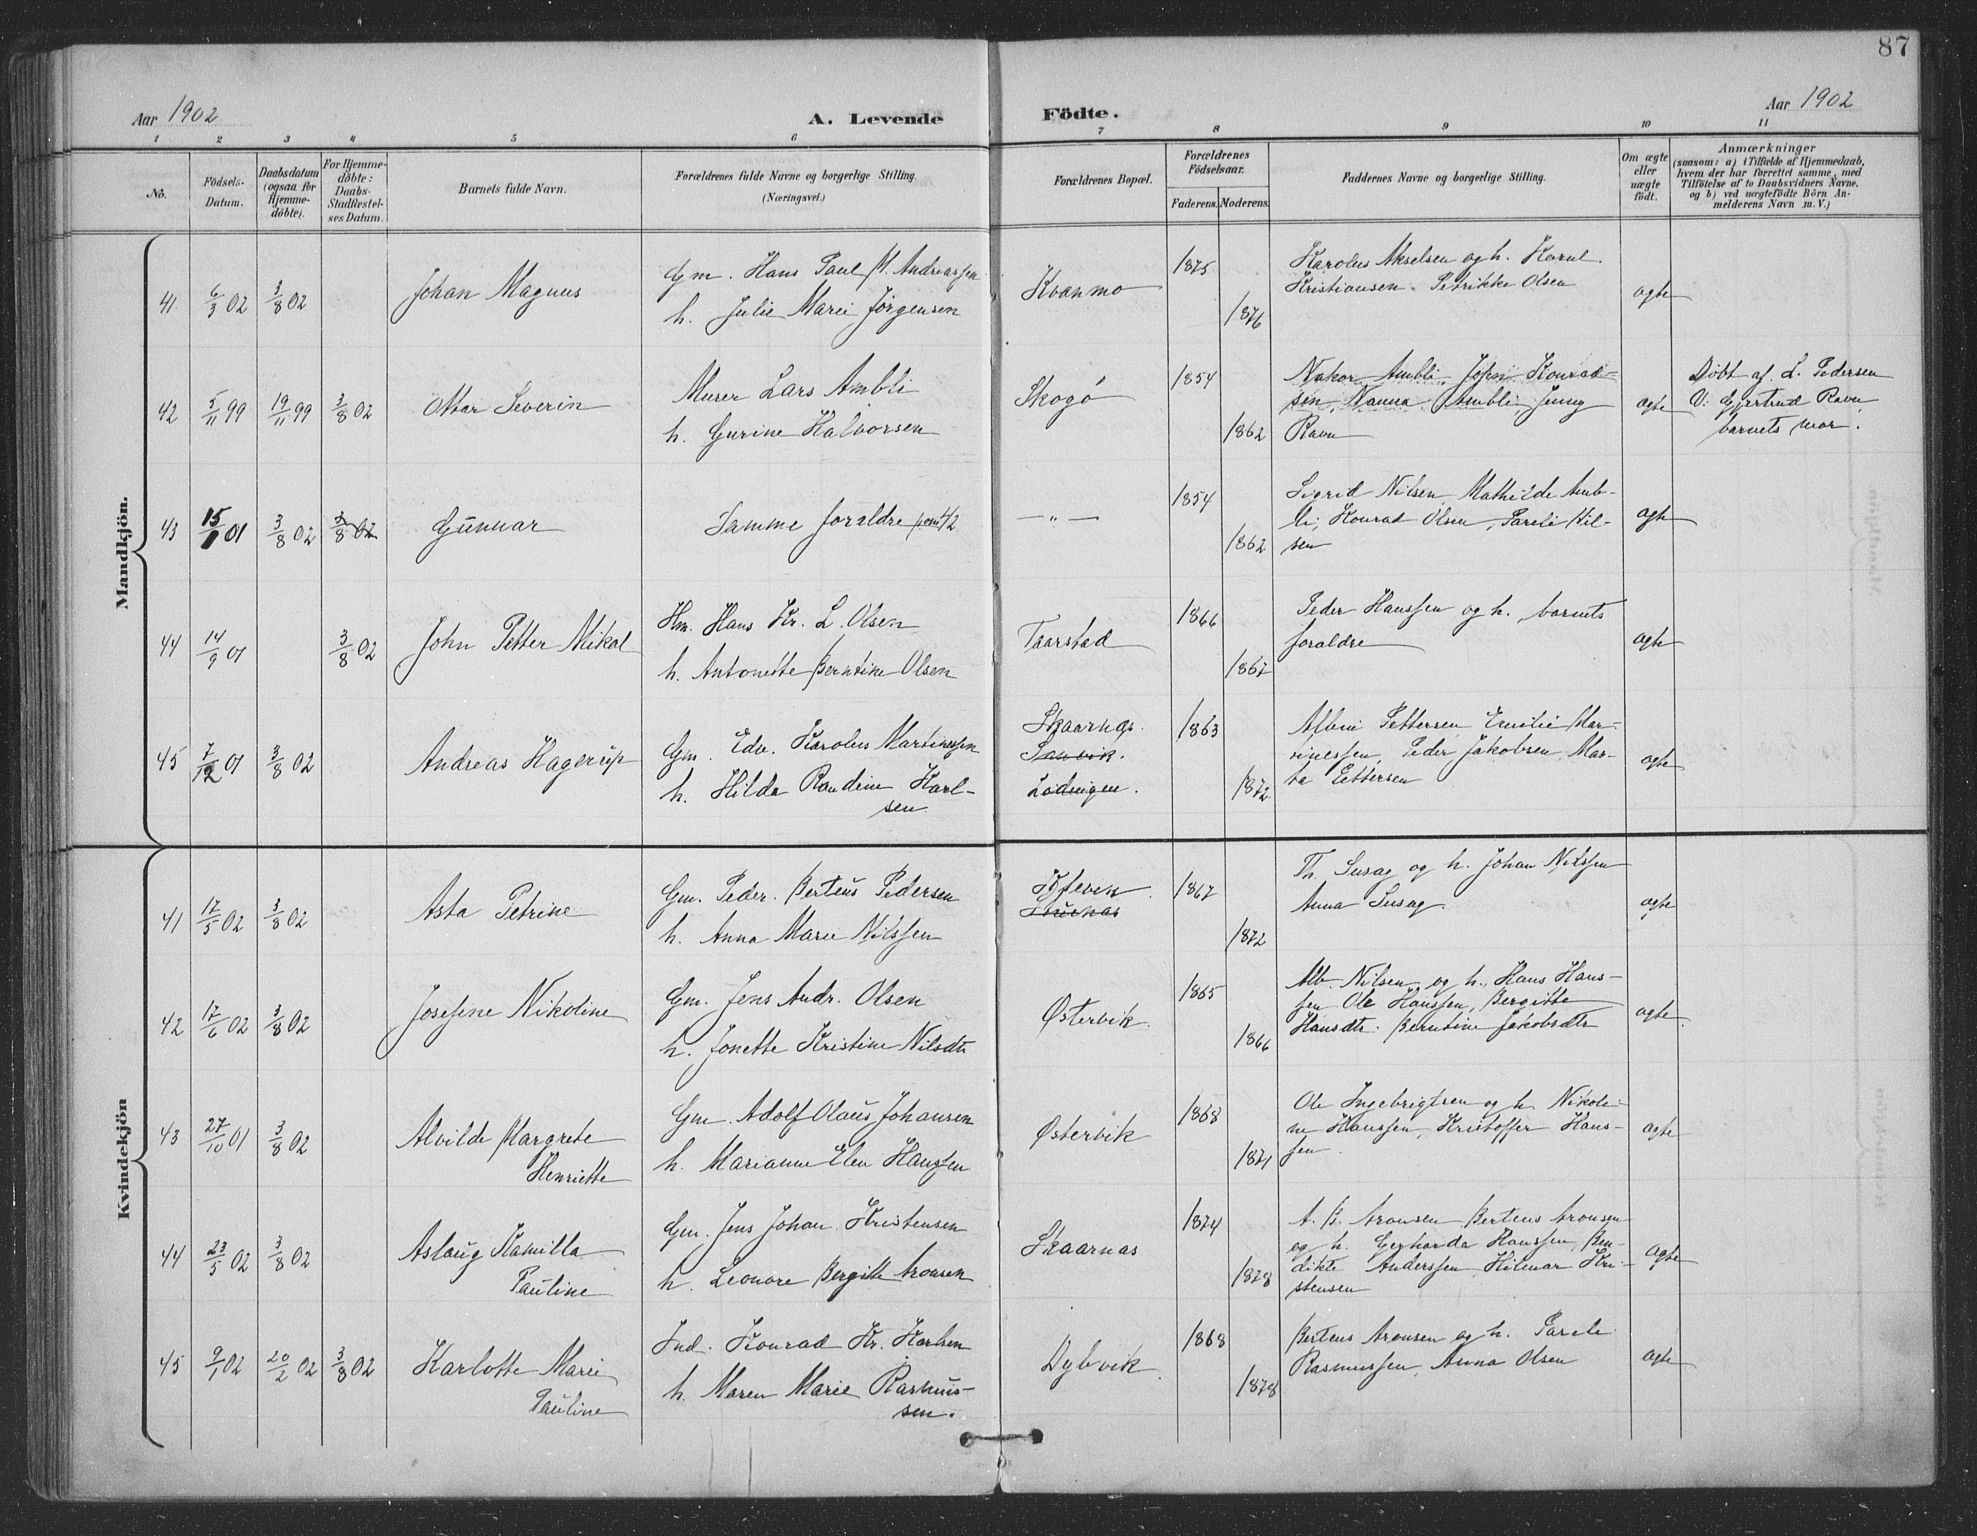 87
Aar 1902
A. Levende Födte.
Aar 1902
1 2 3 4 5 6 7 8 9 10 11
No.
Födsels-Datum.
Daabsdatum (ogsaa for Hjemme-döbte).
For Hjemme-döbte: Daabs-Stadfæstel-ses Datum.
Barnets fulde Navn.
Forældrenes fulde Navne og borgerlige Stilling. (Næringsvei.)
Forældrenes Bopæl.
Forældrenes Födselsaar.
Faderens. Moderens.
Faddernes Navne og borgerlige Stilling.
Om ægte eller uægte födt.
Anmærkninger
(saasom: a) i Tilfælde af Hjemmedaab,
hvem der har forrettet samme, med
Tilföielse af to Daabsvidners Navne,
og b) ved uægtefödte Börn An-
melderens Navn m. V.)
Mandkjön.
41. 6/3 02 3/8 02 Johan Magnus
Gm. Hans Paul M. Andreassen
h. Julie Marie Jørgensen
Kvanmo 1875 1876
Karolus Akselsen og h. Kornl.
Kristiansen. Petrikke Olsen
ægte
42 5/11 99 19/11 99 3/8 02 Ottar Severin
Murer Lars Ambli
h. Gurine Halvorsen
Skogø 1854 1862
Nahor Ambli, John Konrad-
sen, Nanna Ambli, Jenny
Ravn
ægte
Døbt af L. Pedersen
V: Gjertrud Ravn,
barnets mor.
43 15/1 01 3/8 02 3/8 02 Gunnar
Samme forældre som 42
— " — 1854 1862
Sigrid Nilsen Mathilde Amb-
li, Konrad Olsen, Pareli Nil-
sen
ægte
44 14/9 01 3/8 02 John Petter Mikal
Hm. Hans Kr. L. Olsen
h. Antonette Berntine Olsen
Taarstad 1866 1867
Peder Hanssen og h. barnets
forældre
ægte
45 7/12 01 3/8 02 Andreas Hagerup
Gm. Edv. Karolus Martinussen
h. Hilda Randine Karl-
sen
Skaarnes.
Lødingen. 1863 1872
Albin Pettersen, Emilie Mar-
tinessen, Peder Jakobsen, Mar-
ta Pettersen
ægte
Kvindekjön
41 17/5 02 3/8 02 Asta Petrine
Gm. Peder Berteus Pedersen
h. Anna Marie Nilssen
1867 1872
Th. Susag og h. Johan Nilssen
Anna Susag.
ægte
42 17/6 02 3/8 02 Josefine Nikoline
Gm. Jens Andr. Olsen
h. Jonette Kristine Nilsdtr
Østervik. 1865 1866
Alb. Nilsen og h., Hans Hans-
sen Ole Hanssen, Bergitte
Hansdtr. Berntine Jakobsdtr
ægte.
43 27/10 01 3/8 02 Alvilde Margrete
Henriette
Gm. Adolf Olaus Johansen
h. Marianne Elen Hanssen
Østervik 1868 1871
Ole Ingebrigtsen og h. Nikoli-
ne Hanssen, Kristoffer Hans-
sen.
ægte
44 23/5 02 3/8 02 Aslaug Kamilla
Pauline
Gm. Jens Johan Kristensen
h. Leonore Bergitte Aronsen
Skaarnas 1874 1878
A. B. Aronsen, Berteus Aronsen
og h. Gerharda Hanssen, Ben-
dikte Anderssen, Hilmar Kri-
stensen
ægte
45 9/1 02 20/2 02 3/8 02 Karlotte Marie
Pauline
Ind. Konrad Kr. Karlsen
h. Maren Marie Rasmus-
sen.
Dybvik. 1868 1878
Berteus Aronsen og h. Parele
Rasmussen, Anna Olsen
ægte